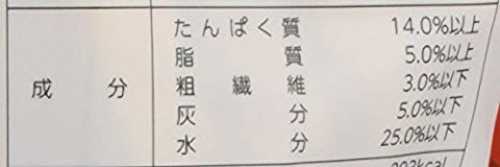 成分
たんぱく質 14.0%以上
脂質 5.0%以上
粗繊維 3.0%以下
灰分 5.0%以下
水分 25.0%以下